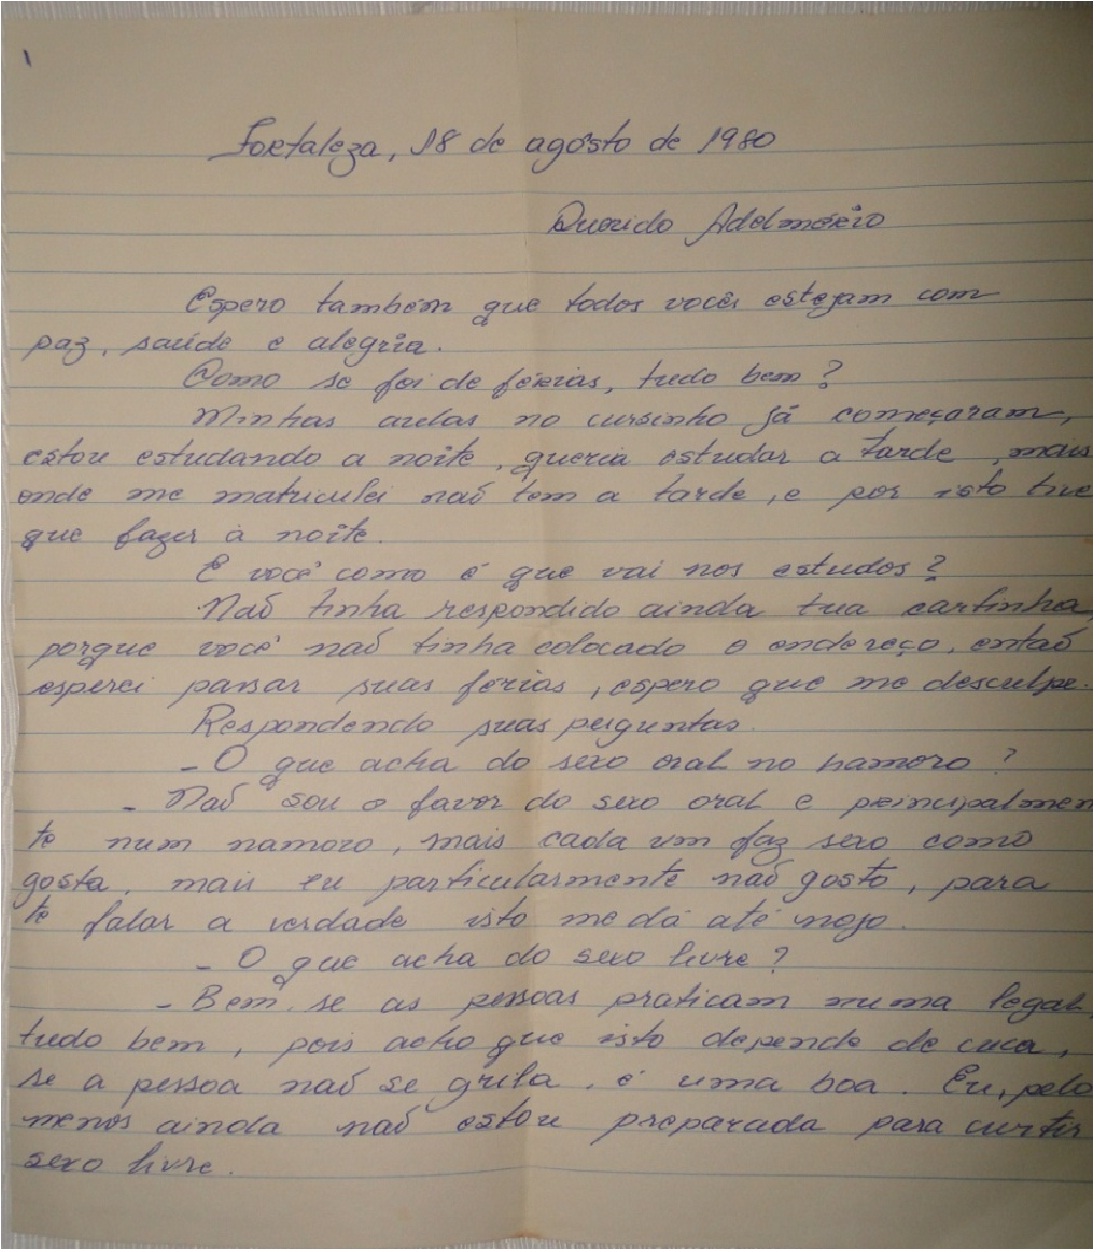 1
Fortaleza, 18 de agosto de 1980
Querido Adelmário
Espero também que todos vocês estejam com
paz, saúde e alegria.
Como se foi de férias, tudo bem?
Minhas aulas no cursinho já começaram,
estou estudando a noite, queria estudar a tarde, mais
onde me matriculei naõ tem a tarde, e por isto tive
que fazer à noite.
E você como é que vai nos estudos?
Naõ tinha respondido ainda tua cartinha,
porque você naõ tinha colocado o endereço, entaõ
esperei passar suas férias, espero que me desculpe.
Respondendo suas perguntas.
- O que acha do sexo oral no namoro?
- Naõ sou a favor do sexo oral e principalmen
te num namoro, mais cada um faz sexo como
gosta, mais eu particularmente naõ gosto, para
te falar a verdade isto me dá até nojo.
- O que acha do sexo livre?
- Bem, se as pessoas praticam numa legal,
tudo bem, pois acho que isto depende de cuca,
se a pessoa naõ se grila, é uma boa. Eu, pelo
menos ainda naõ estou preparada para curtir
sexo livre.